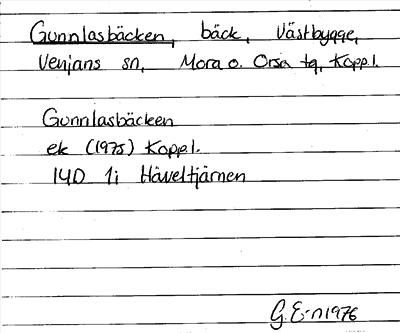 Gunnlasbäcken, bäck, Västbygge,
Venjans sn, Mora o. Orsa tg, Koppl.
Gunnlasbäcken
ek (1975) Koppl.
14D 1i Håveltjärnen
G.E-n 1976